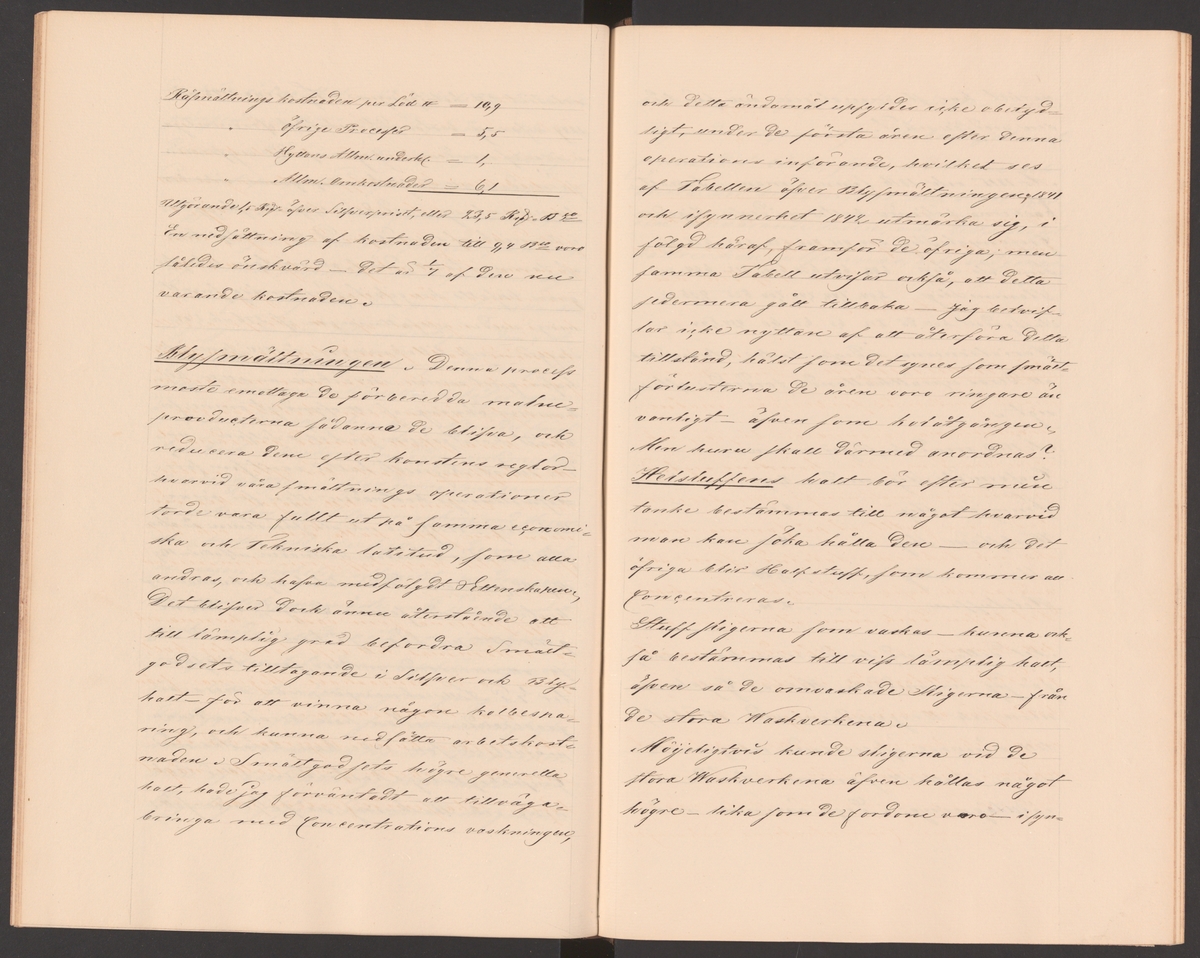 Råsmältnings kostnaden per Löd ℔ = 10,9
" öfrige Processer = 5,5
" Hyttans Allm. underh. = 1,
" Allm. Omkostnader = 6,1
Utgörande öfver Silfverpriset, eller 23,5 Rdr B co
En nedsättning af kostnaden till 9,4 voro
således önskvärd — Det är 1/7 af den nu
varande kostnaden.
Blysmältningen. Denna process
måste emottaga de förberedda malm-
producterna sådanna de blifva, och
reducera dem efter konstens reglor —
hvarvid våra smältnings operationer
torde vara fullt ut på samma economi-
ska och Tekniska latitud, som alla
andras, och hafva medfölgt Vettenskapen.
Det blifver dock ännu återstående att
till lämplig grad befordra Smält-
godsets tilltagande i Silfver och Bly-
halt — för att vinna någon kolbespa-
ring, och kunna nedsätta arbetskost-
naden. Smältgodsets högre generella
halt, hade jag förväntadt att tillväga-
bringa med Concentrations vaskningen,
och detta ändamål upfyldes icke obetyd-
ligt, under de första åren efter denna
operations införande, hvilket ses
af Tabellen öfver Blysmältningen; 1841
och isynnerhet 1842 utmärka sig, i
fölgd häraf, framför de öfriga; men
samma Tabell utvisar också, att detta
sedermera gått tillbaka — Jag betvif-
lar icke nyttan af att återföra detta
tillstånd, hälst som det synes som smält-
förlusterna de åren voro ringare än
vanligt — äfven som kolåtgången.
Men huru skall därmed anordnas?
Helstuffens halt bör efter min
tanke bestämmas till något hvarvid
man kan söka hålla den — och det
öfriga blir Halfstuff, som kommer att
Concentreras.
Stuff sligerna som vaskas — kunna ock-
så bestämmas till viss lämplig halt,
äfven så de omvaskade Sligerna — från
de stora Waskverkena.
Möjeligtvis kunde sligerna vid de
stora Waskverkena äfven hållas något
högre — lika som de fordom voro — isyn-